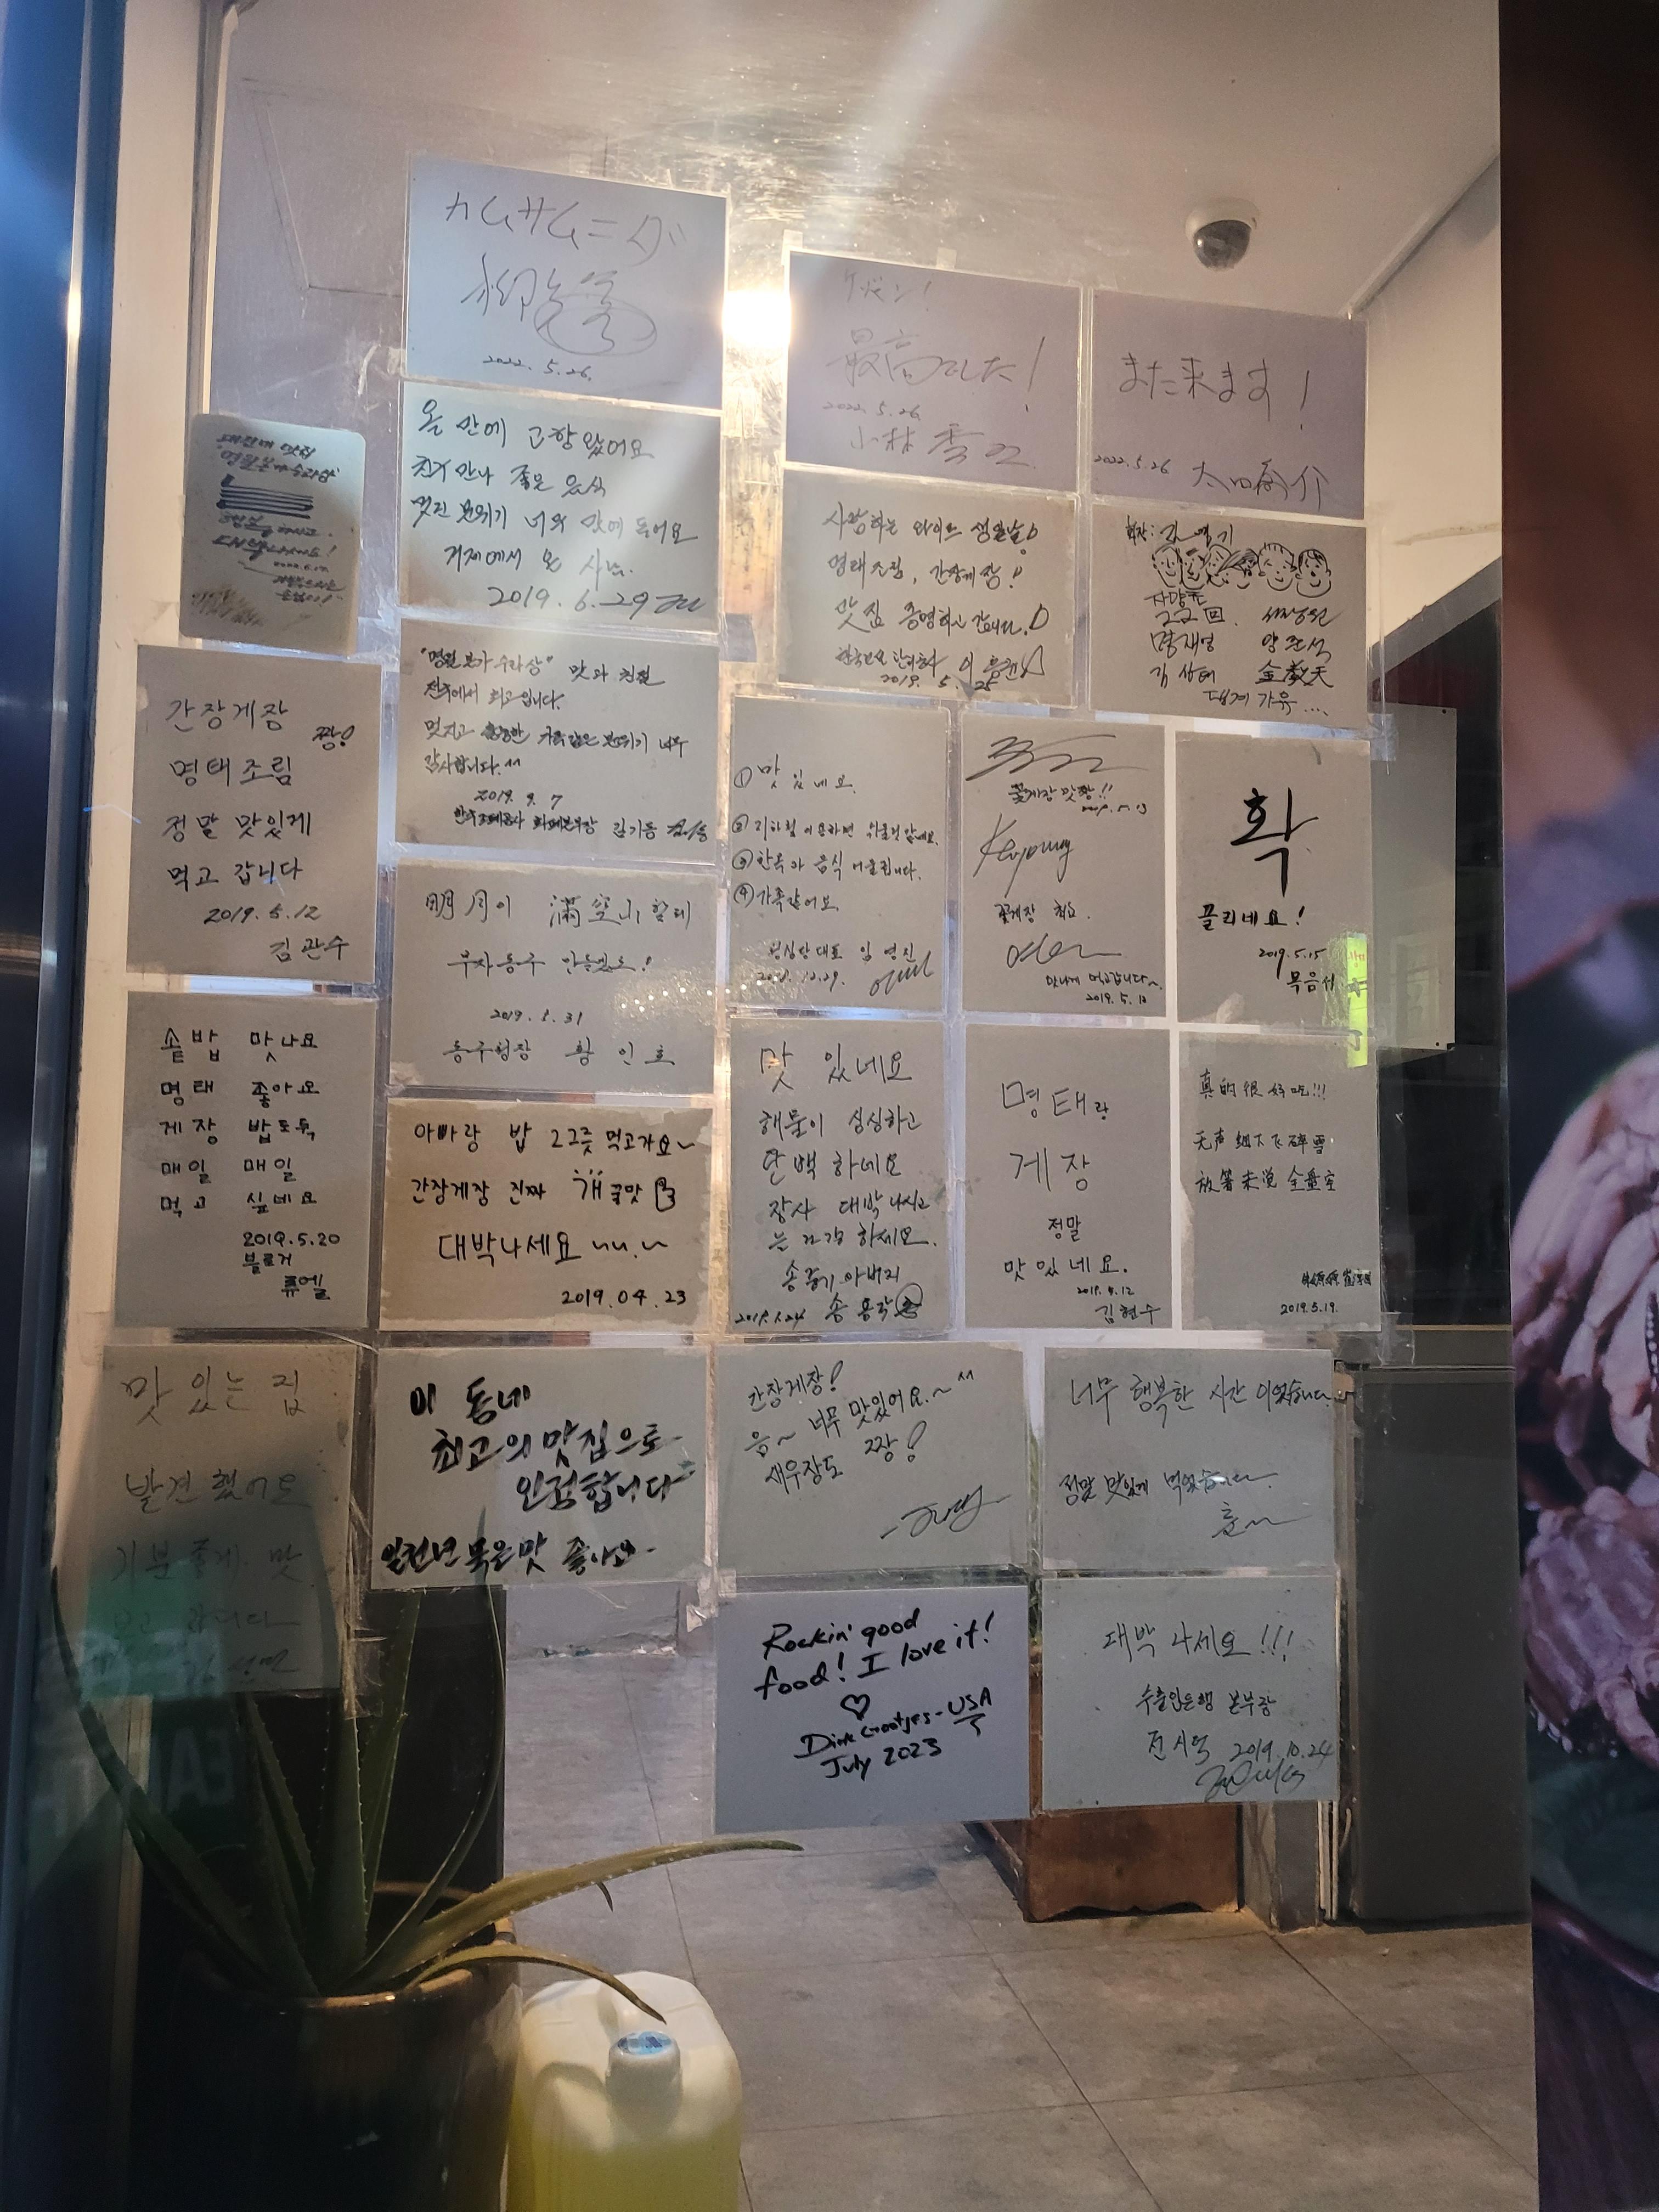 カムサハムニダ
2022.5.26.
最高でした!
2022.5.26
小林
また来ます!
2022.5.26
맛집
대박나세요!
올 만에 고향 왔어요
친구 만나 좋은 음식
멋진 분위기 너의 맛에 독어요
거제에서 온
2019.6.29
사랑하는 와이프 생일날!
명태조림, 간장게장!
맛집 증명하고 갑니다.
2019.5.25
22回.
김상태
간장게장
짱!
명태조림
정말 맛있게
먹고 갑니다
2019.5.12
김관수
"명월본가수라상" 맛과 친절
전국에서 최고입니다.
멋지고
분위기 너무
감사합니다.^^
2019.9.7
김기동
① 맛있네요.
③ 한옥과 음식 어울립니다.
④ 가족같아요.
대표 임영진
꽃게장 맛짱!!
꽃게장 최고
맛나게 먹고갑니다~
2019.5.13
확
끌리네요!
2019.5.15
목음서
明月이 滿空山 할테
부자동구 만들겠소!
2019.5.31
동구청장 황인호
솥밥 맛나요
명태 좋아요
게장 밥도둑
매일 매일
먹고 싶네요
2019.5.20
블로거
류엘
아빠랑 밥 2그릇 먹고가요~
간장게장 진짜 개꿀맛
대박나세요
2019.04.23
맛있네요
해물이 심심하고
단백하네요
장사 대박나시고
는 건강하세요.
송중기 아버지
송용각
명태랑
게장
정말
맛있네요.
2019.5.12
김현수
真的很好吃!!!
无声细下飞碎雪
放箸未觉金盘空
2019.5.19.
맛있는 집
발견했어요
기분좋게 맛
보고 갑니다
이 동네
최고의 맛집으로
인정합니다
일천년 묵은맛 좋아요
간장게장!
음~ 너무 맛있어요.~^^
새우장도 짱!
너무 행복한 시간이었습니다
정말 맛있게 먹었습니다.
Rockin' good
food! I love it!
♡
USA
July 2023
대박 나세요!!!
수출입은행 본부장
전시덕 2019.10.24